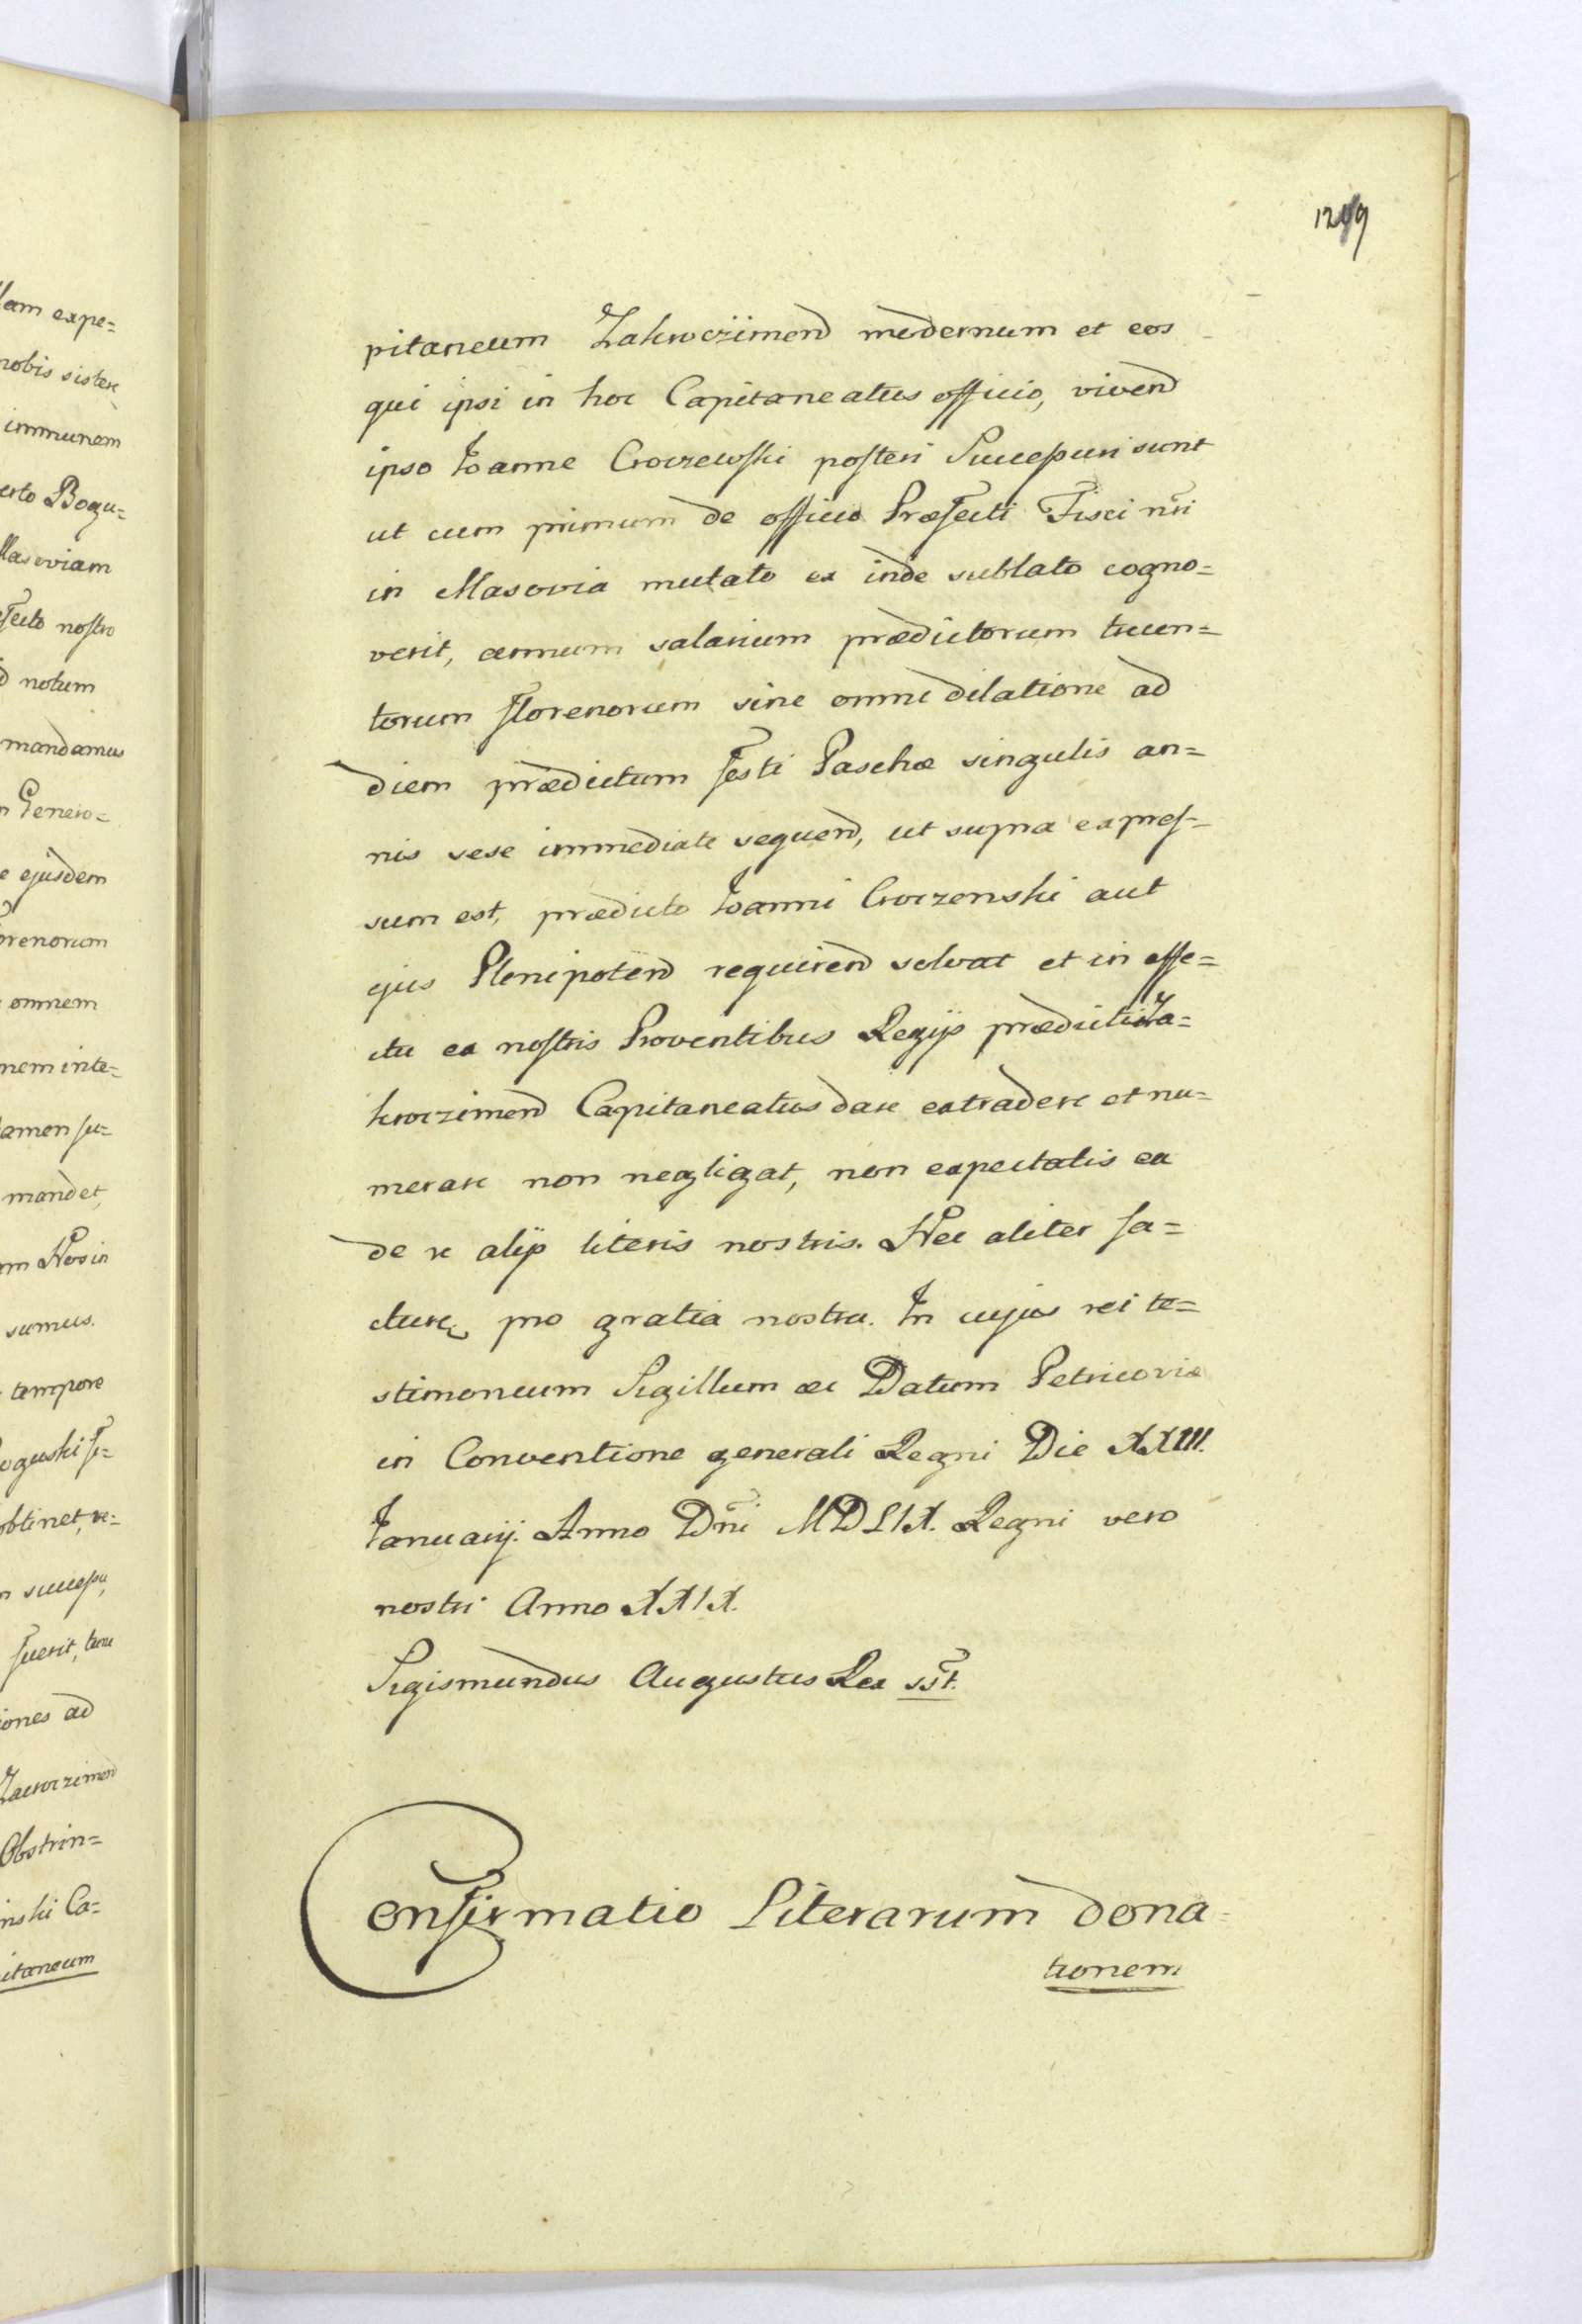 1249
lam expe=
nobis sistere
immunem
erto Bogu=
Masoviam
fecto nostro
notum
mandamus
Genero=
e ejusdem
orenorum
omnem
nem inte=
tamen su=
mandet,
m Nos in
sumus.
tempore
oguski fe=
obtinet, re=
n succeſsu,
fuerit, tunc
iones ad
Zacroczimen̄
Obstrin=
inski Ca=
itaneum
pitaneum Zakroczimen̄ modernum et eos
qui ipsi in hoc Capitaneatus officio, viven̄
ipso Joanne Croczewſki poſteri Succeſsuri sunt
ut cum primum de officio Præfecti Fisci nr̄i
in Masovia mutato ex inde sublato cogno=
verit, annuum salarium prædictorum trecen=
torum florenorum sine omni dilatione ad
diem prædictum festi Paschæ singulis an=
nis sese immediate sequen̄, ut supra expreſ=
sum est, prædicto Joanni Croczenski aut
ejus Plenipoten̄ requiren̄ solvat et in effe=
ctu ex noſtris Proventibus Regijs prædicti Za=
kroczimen̄ Capitaneatus dare extradere et nu=
merare non negligat, non expectatis ea
de re alijs literis nostris. Nec aliter fa=
cture, pro gratia nostra. In cujus rei te=
stimonium Sigillum &c Datum Petricoviæ
in Conventione generali Regni Die XXIII.
Januarij. Anno Dn̄i MDLIX. Regni vero
nostri Anno XXIX.
Sigismundus Augustus Rex sst.
Confirmatio Literarum dona=
tionem